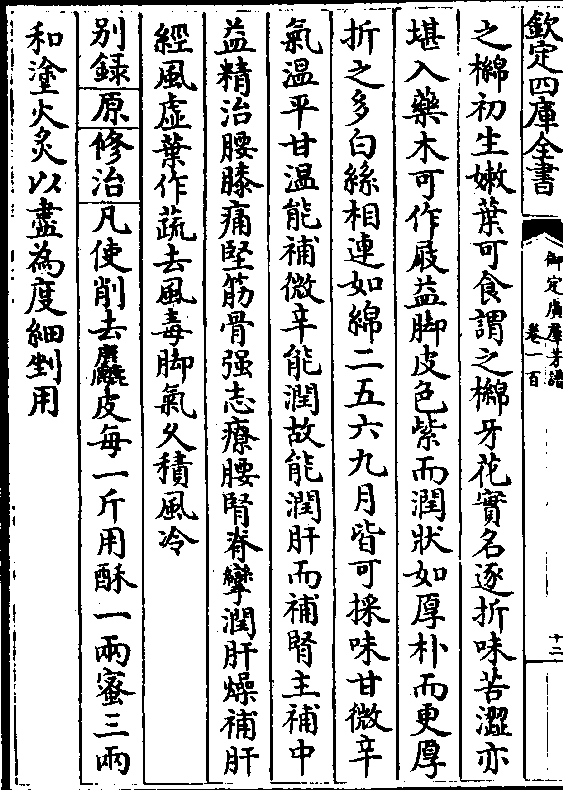 欽定四庫全書
御定廣羣芳譜
卷一百
十二
之櫋初生嫩葉可食謂之櫋牙花實名逐折味苦澀亦
堪入藥木可作屐益脚皮色紫而潤狀如厚朴而更厚
折之多白絲相連如綿二五六九月皆可採味甘微辛
氣溫平甘溫能補微辛能潤故能潤肝而補腎主補中
益精治腰膝痛堅筋骨强志療腰腎脊攣潤肝燥補肝
經風虛葉作蔬去風毒脚氣久積風冷
别録原修治凡使削去麤皮每一斤用酥一兩蜜三兩
和塗火炙以盡為度細剉用